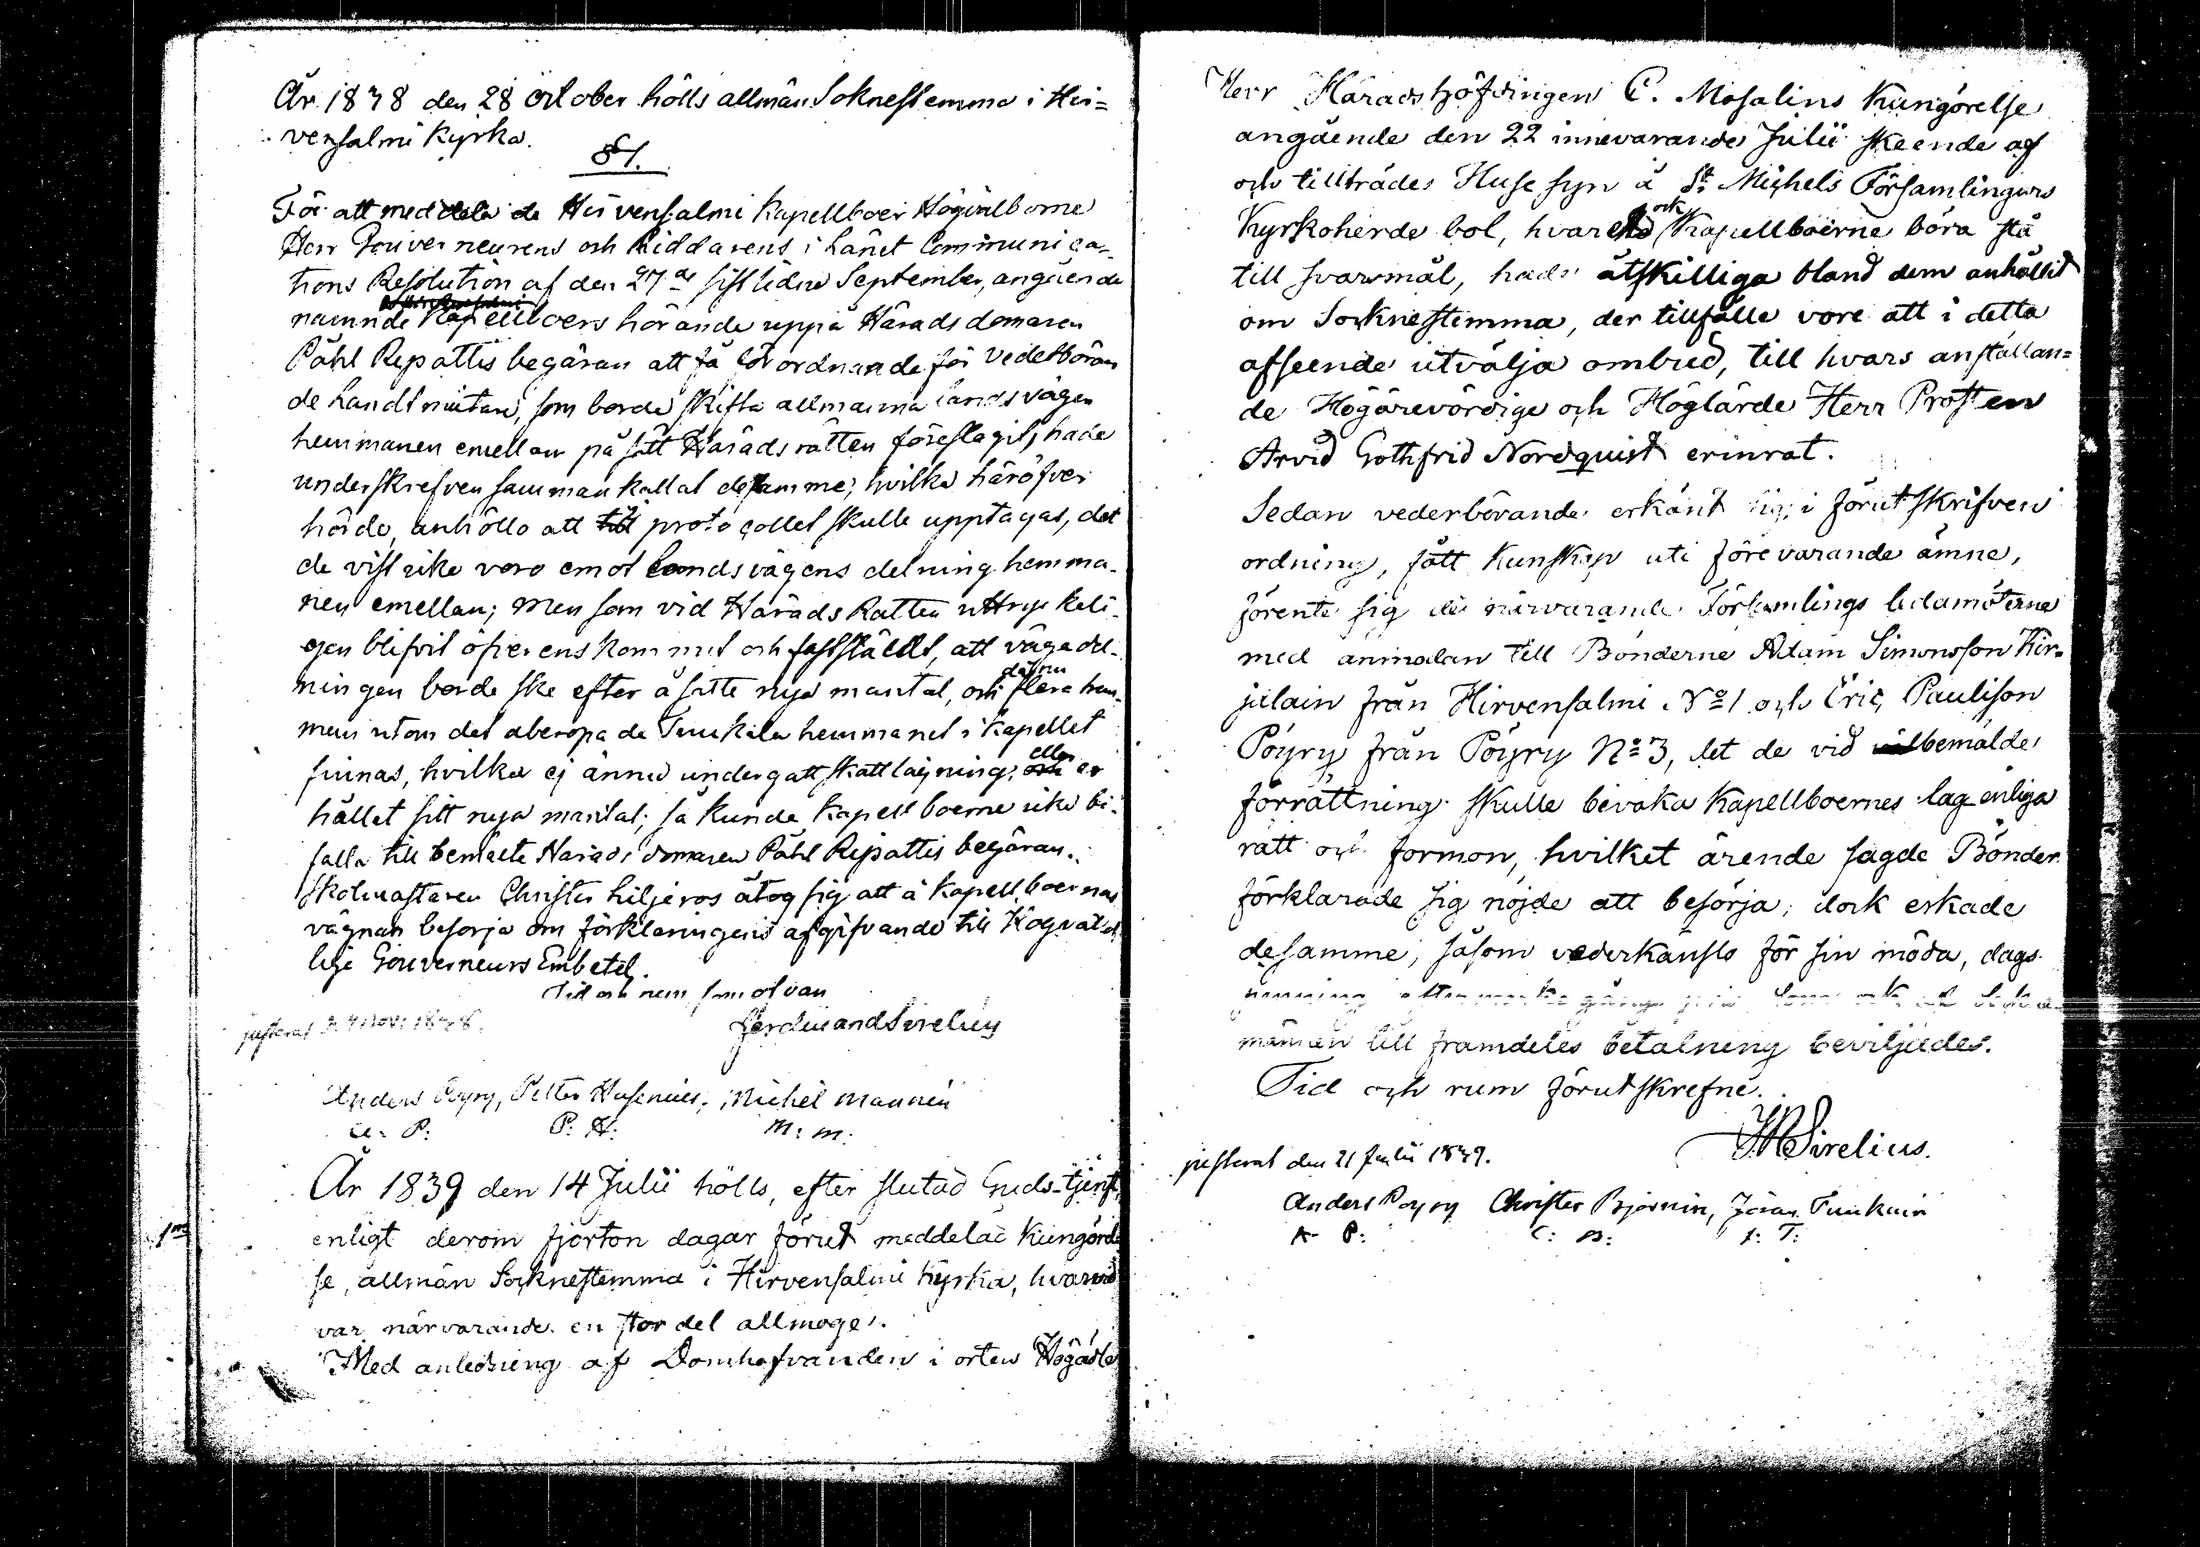 År 1838 den 28 October hölls allmän Soknestemma i Hir=
vensalmi Kyrka.
§ 1.
För att meddela de Hirvensalmi Kapellboer Högvälborne
Herr Gouverneurens och Riddarens i Länet Communica-
tions Resolution af den 27de sistledne September, angående
namnde Kapellboers hörande uppå Härads domaren
Påhl Ripattis begäran att få förordnande för vederböran
de Landtmätare, som borde skifta allmänna landsvägen
hemmanen emellan på sätt Häradsrätten föreslagit, hade
underskrefven samman kallat desamme; hvilka häröfver
hörde, anhöllo att till protocollet skulle upptagas, det
de visst icke voro emot Landsvägens delning hemma-
nen emellan; men som vid Härads Rätten uttryckeli-
gen blifvit öfverenskommit och fastställt, att vägadel-
ningen borde ske efter åsatte nya mantal, och det nu flera hem-
man utom det åberopade Tuukkala hemmanet i Kapellet
finnas, hvilka ej ännu undergått skattläggning eller er
hållet sitt nya mantal; så kunde Kapellboerne icke bi-
falla till bemälte Härads domaren Påhl Ripattis begäran.
Skolmästaren Christer Liljeros åtog sig att å Kapellboernas
vägnar besörja om förklaringens afgifvande till Högvälbo
lige Gouverneurs Embetet.
Tid och rum som ofvan
Ferdinand Sirelius
justerat d. 4 Nov: 1838.
Anders Pöyry, Petter Hasenius, Michel Manninen
A: P: P: H: M: M:
År 1839 den 14 Julii hölls, efter slutad Guds-tjenst,
enligt derom fjorton dagar förut meddelad Kungörel
se, allmän Socknestemma i Hirvensalmi Kyrka, hvarvid
1mo
var närvarande en stor del allmoge.
Med anledning af Domhafvanden i orten Högädle
Herr Häradshöfdingen C. Mosalins Kungörelse
angående den 22 innevarande Julii skeende af
och tillträdes Huse syn å St Michels Församlingars
Kyrkoherde bol, hvartill och Kapellboerne böra stå
till svarsmål, hade åtskilliga bland dem anhållit
om Socknestemma, der tillfälle vore att i detta
afseende utvälja ombud, till hvars anställan=
de Högärevördige och Höglärde Herr Prosten
Arvid Gothfrid Nordquist erinrat.
Sedan vederbörande erkänt sig, i förutskrifven
ordning, fått Kunskap uti förevarande ämne,
förente sig de närvarande Församlings ledamöterne
med anmodan till Bönderne Adam Simonsson Kir-
jalain från Hirvensalmi No 1 och Eric Paulsson
Pöyry från Pöyry No 3, det de vid bemälde
förrättning skulle bevaka Kapellboernes lagenliga
rätt och förmon, hvilket ärende sagde Bönder
förklarade sig nöjde att besörja; dock eskade
desamme, såsom vederkänsla för sin möda, dags-
penning efter
männen till framdeles betalning beviljades.
Tid och rum förutskrefne.
Sirelius.
justerat den 21 Julii 1839.
Anders Pöyry Christer Björnin, Jöran Tuukain
A- P: C: B: J: T: